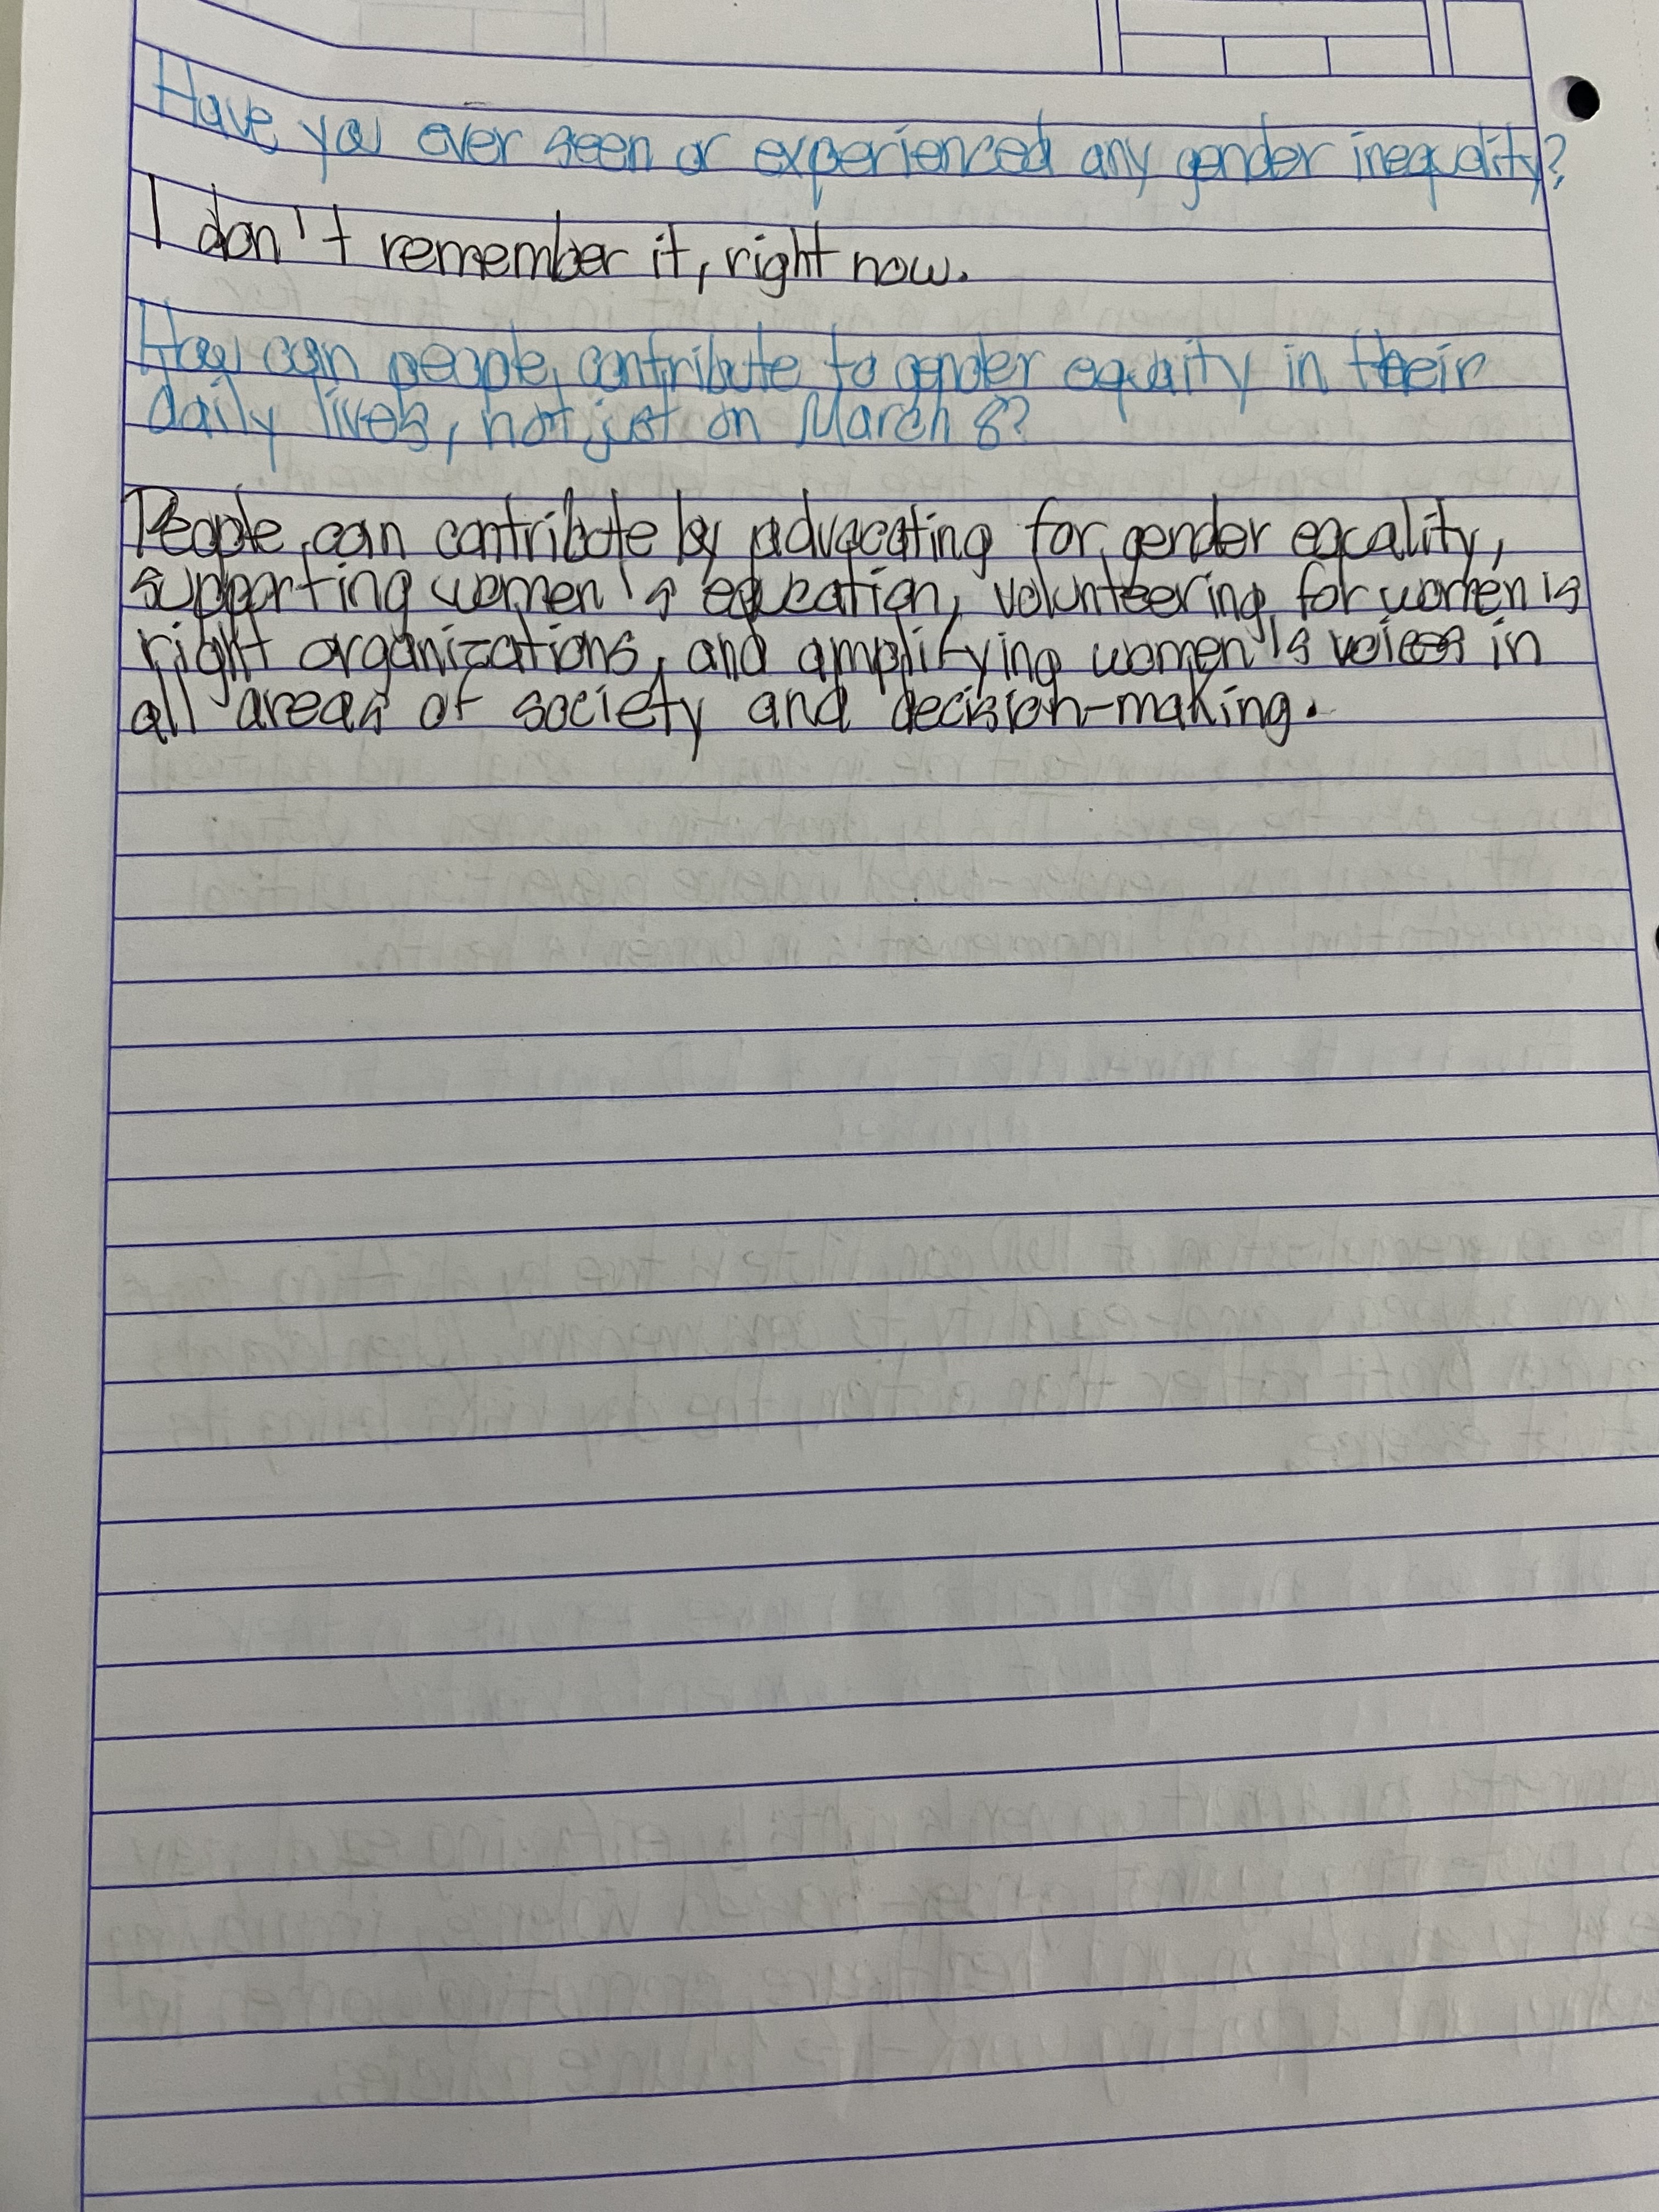 Have you ever seen or experienced any gender inequality?
I don't remember it, right now.
How can people contribute to gender equity in their
daily lives, not just on March 8?
People can contribute by advocating for gender equality,
supporting women's education, volunteering for women's
right organizations, and amplifying women's voices in
all areas of society and decision-making.